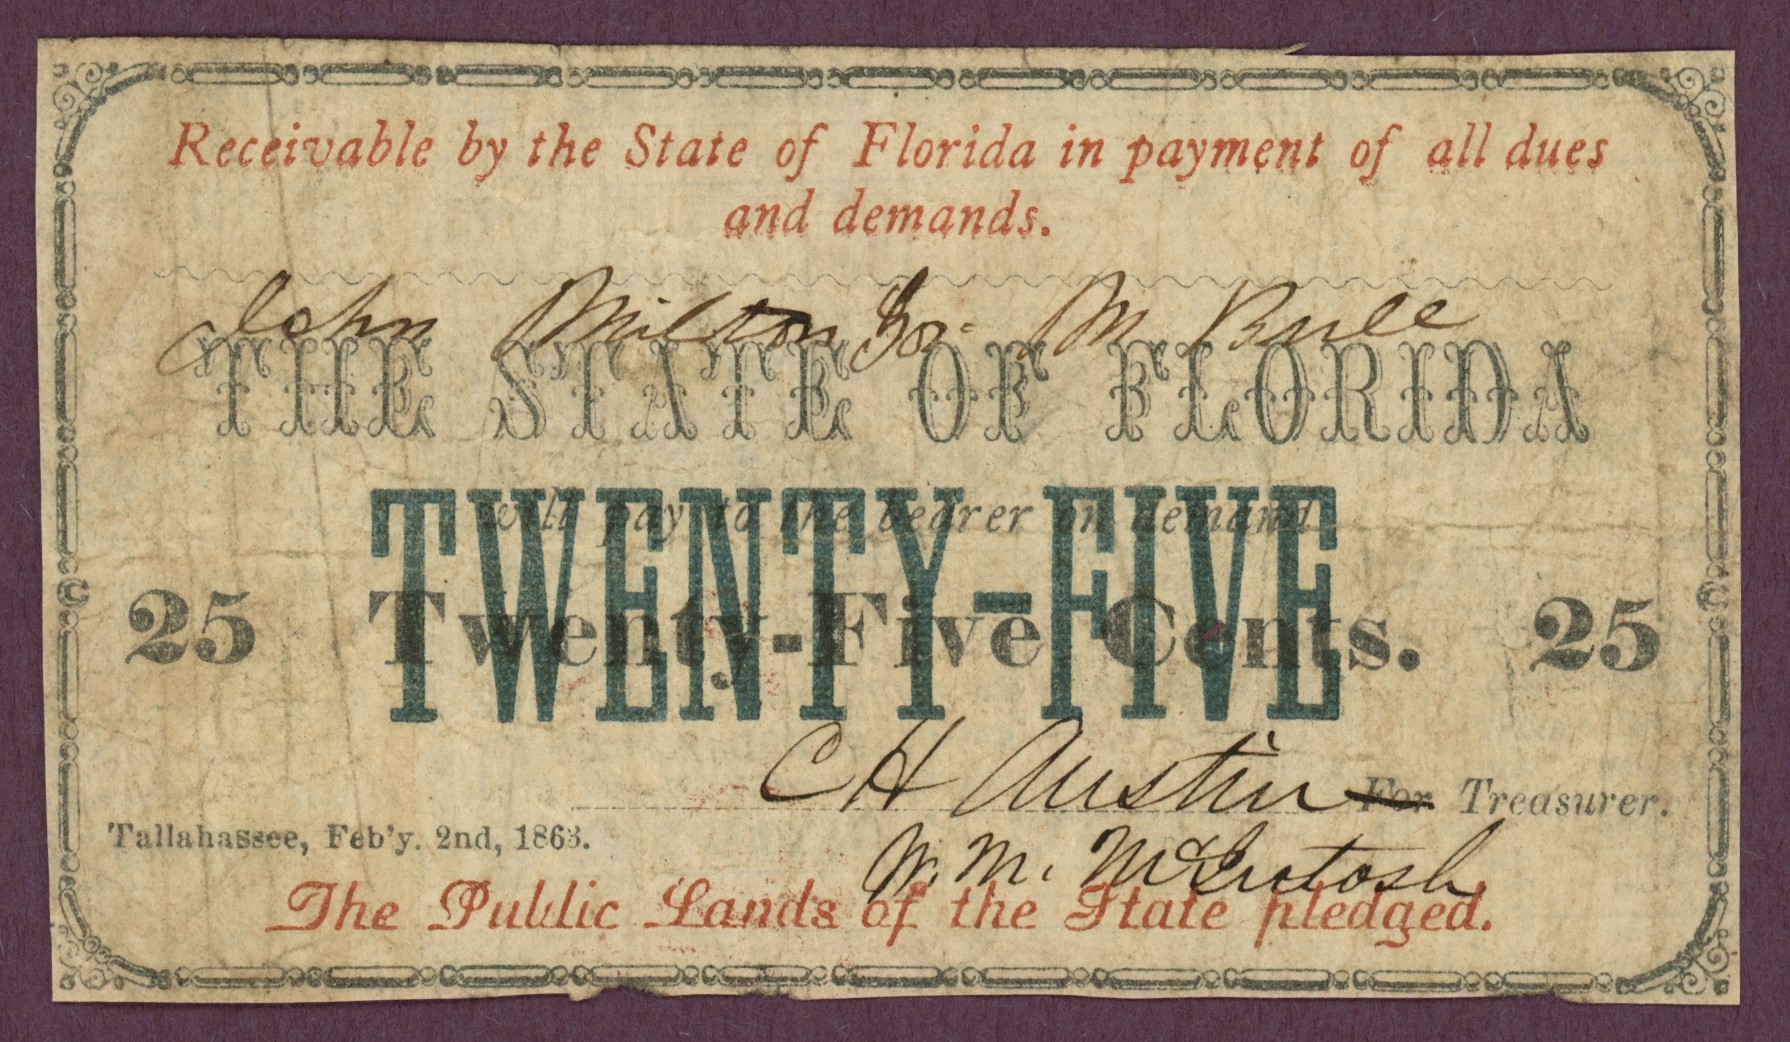 Receivable by the State of Florida in payment of all dues
and demands.
John Milton Gov. M Bull
THE STATE OF FLORIDA
will pay to the bearer on demand
TWENTY-FIVE
25 Twenty-Five Cents. 25
C H Austin For Treasurer.
Tallahassee, Feb'y. 2nd, 1863.
W. M. McIntosh
The Public Lands of the State pledged.